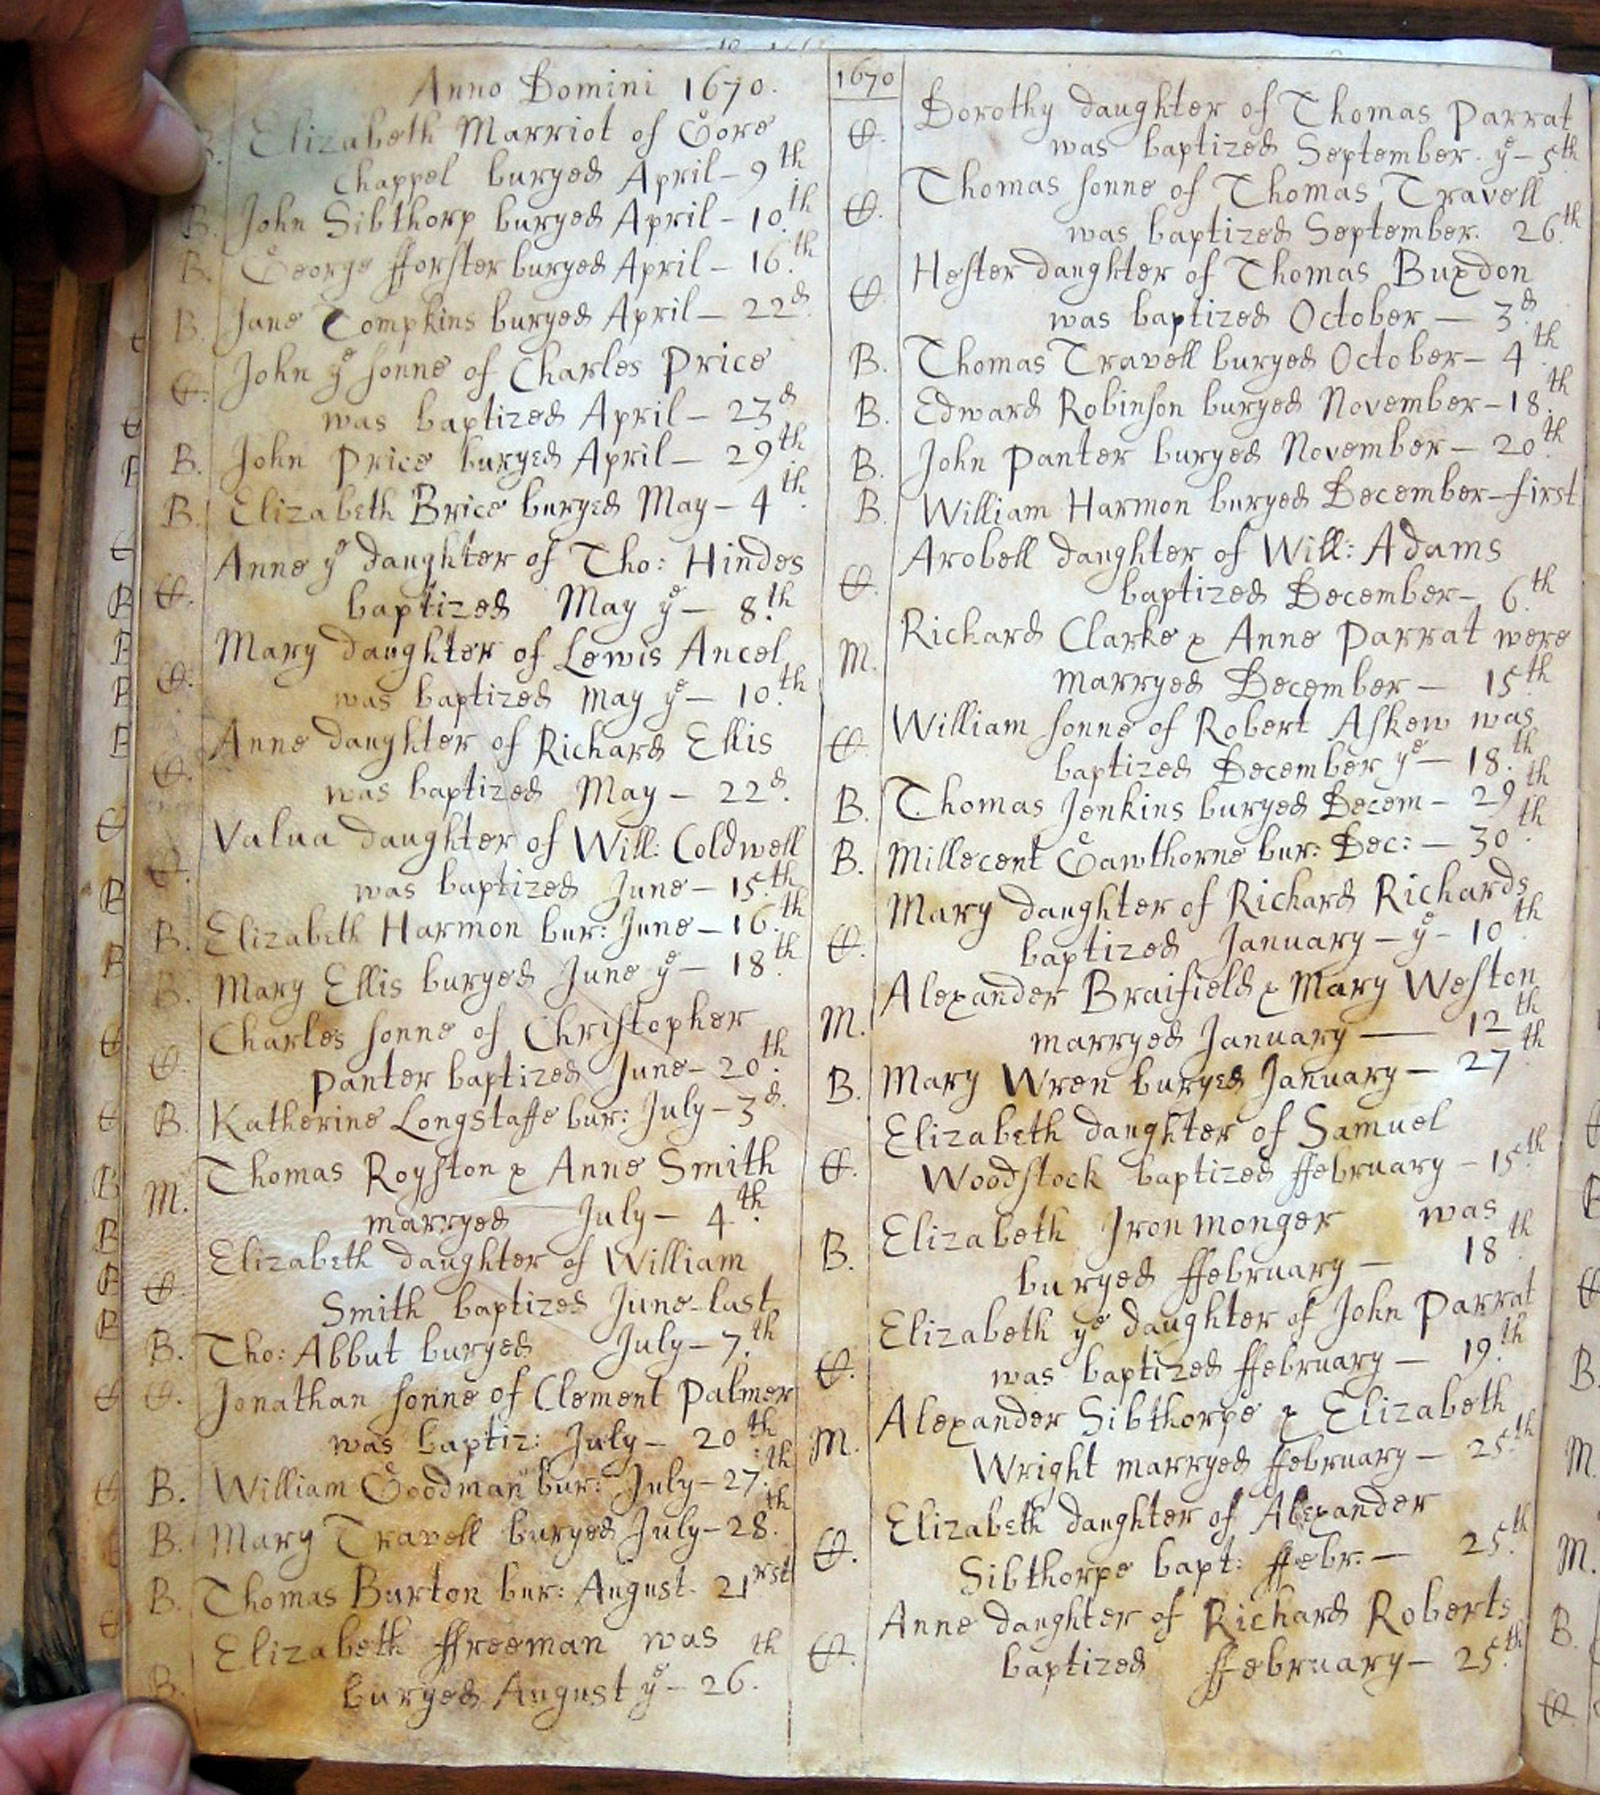 Anno Domini 1670.
B. Elizabeth Marriot of Gore
Chappel buryed April – 9th
B. John Sibthorp buryed April – 10th
B. George fforster buryed April – 16th
B. Jane Tompkins buryed April – 22d
C. John ye sonne of Charles Price
was baptized April – 23d
B. John Price buryed April – 29th
B. Elizabeth Brice buryed May – 4th
C. Anne ye daughter of Tho: Hindes
baptized May ye – 8th
C. Mary daughter of Lewis Ancel
was baptized May ye – 10th
C. Anne daughter of Richard Ellis
was baptized May – 22d
C. Valua daughter of Will: Coldwell
was baptized June – 15th
B. Elizabeth Harmon bur: June – 16th
B. Mary Ellis buryed June ye – 18th
C. Charles sonne of Christopher
Panter baptized June – 20th
B. Katherine Longstaffe bur: July – 3d
M. Thomas Royston & Anne Smith
marryed July – 4th
C. Elizabeth daughter of William
Smith baptized June – last
B. Tho: Abbut buryed July – 7th
C. Jonathan sonne of Clement Palmer
was baptiz: July – 20th
B. William Goodman bur: July – 27th
B. Mary Travell buryed July – 28th
B. Thomas Burton bur: August. 21rst
B. Elizabeth ffreeman was
buryed August ye – 26th
1670
C. Dorothy daughter of Thomas Parrat
was baptized September. ye – 5th
C. Thomas sonne of Thomas Travell
was baptized September. 26th
C. Hester daughter of Thomas Buxdon
was baptized October – 3d
B. Thomas Travell buryed October – 4th
B. Edward Robinson buryed November – 18th
B. John Panter buryed November – 20th
B. William Harmon buryed December – first
C. Arobell daughter of Will: Adams
baptized December – 6th
M. Richard Clarke & Anne Parrat were
marryed December – 15th
C. William sonne of Robert Askew was
baptized December ye – 18th
B. Thomas Jenkins buryed Decem – 29th
B. Millecent Gawthorne bur: Dec: – 30th
C. Mary daughter of Richard Richards
baptized January – ye – 10th
M. Alexander Braifield & Mary Weston
marryed January – 12th
B. Mary Wren buryed January – 27th
C. Elizabeth daughter of Samuel
Woodstock baptized ffebruary – 15th
B. Elizabeth Ironmonger was
buryed ffebruary – 18th
C. Elizabeth ye daughter of John Parrat
was baptized ffebruary – 19th
M. Alexander Sibthorpe & Elizabeth
Wright marryed ffebruary – 25th
C. Elizabeth daughter of Alexander
Sibthorpe bapt: ffebr: – 25th
C. Anne daughter of Richard Roberts
baptized ffebruary – 25th